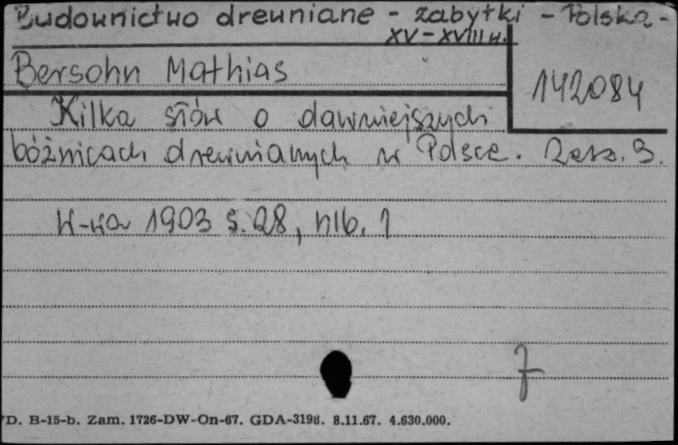 Budownictwo drewniane - zabytki - Polska -
XV - XVIII w.
Bersohn Mathias
142084
Kilka słów o dawniejszych
bóżnicach drewnianych w Polsce. Zesz. 3.
W-wa 1903 s. 28, nlb. 1
7
D. B-15-b. Zam. 1726-DW-On-67. GDA-3198. 8.11.67. 4.630.000.